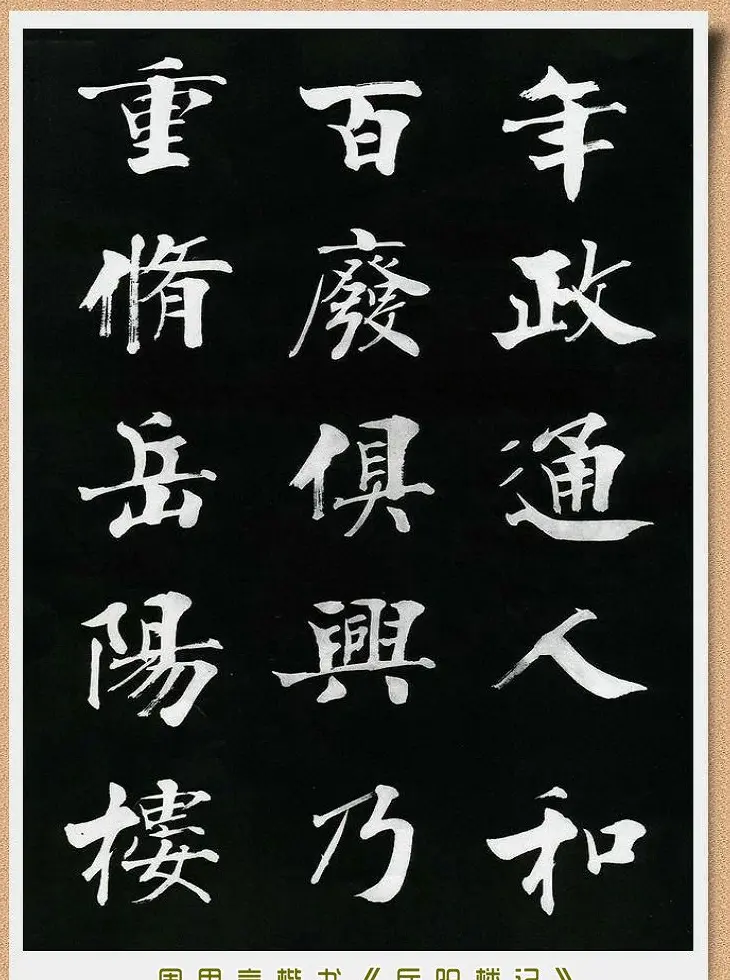 年政通人和
百廢俱興乃
重脩岳陽樓
周思言楷书《岳阳楼记》